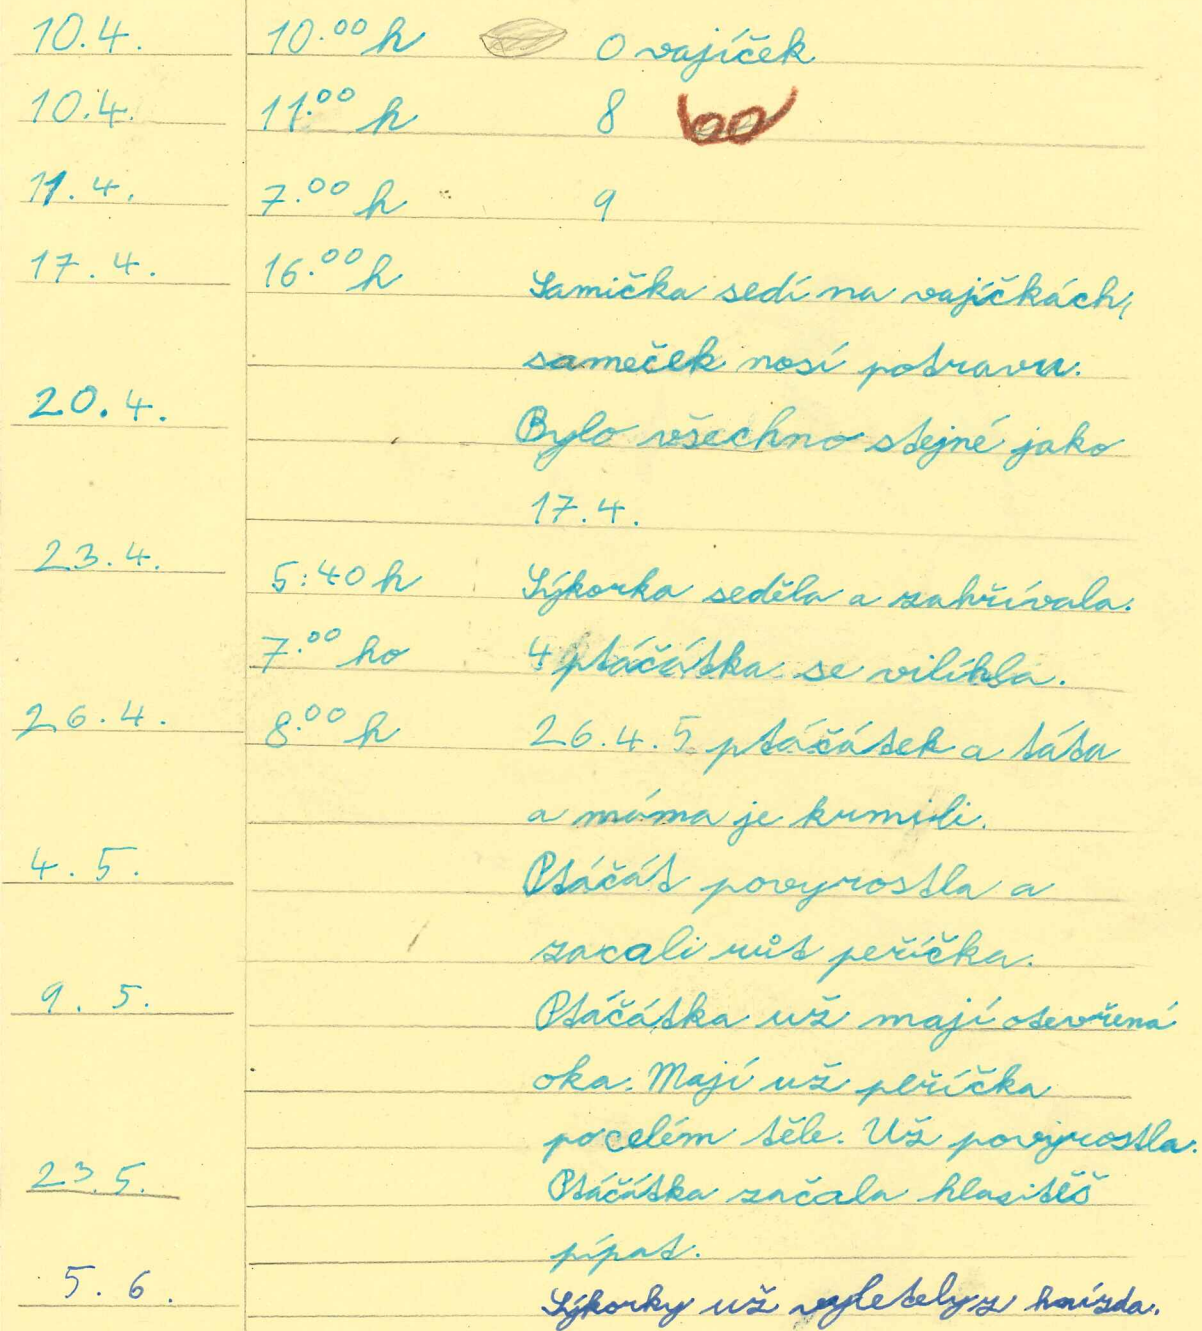 10.4. 10.00 h 0 vajíček
10.4. 11.00 h 8
11.4. 7.00 h 9
17.4. 16.00 h Samička sedí na vajíčkách,
sameček nosí potravu.
20.4. Bylo všechno stejné jako
17.4.
23.4. 5:40 h Sýkorka seděla a zahřívala.
7.00 ho 4 ptáčátka se vilíhla.
26.4. 8.00 h 26.4. 5 ptáčátek a táta
a máma je krmili.
4.5. Ptáčát povyrostla a
zacali růt peříčka.
9.5. Ptáčátka už mají otevřená
oka. Mají už peříčka
po celém těle. Už povyrostla.
23.5. Ptáčátka začala hlasitěš
pípat.
5.6. Sýkorky už vyletely z hnízda.